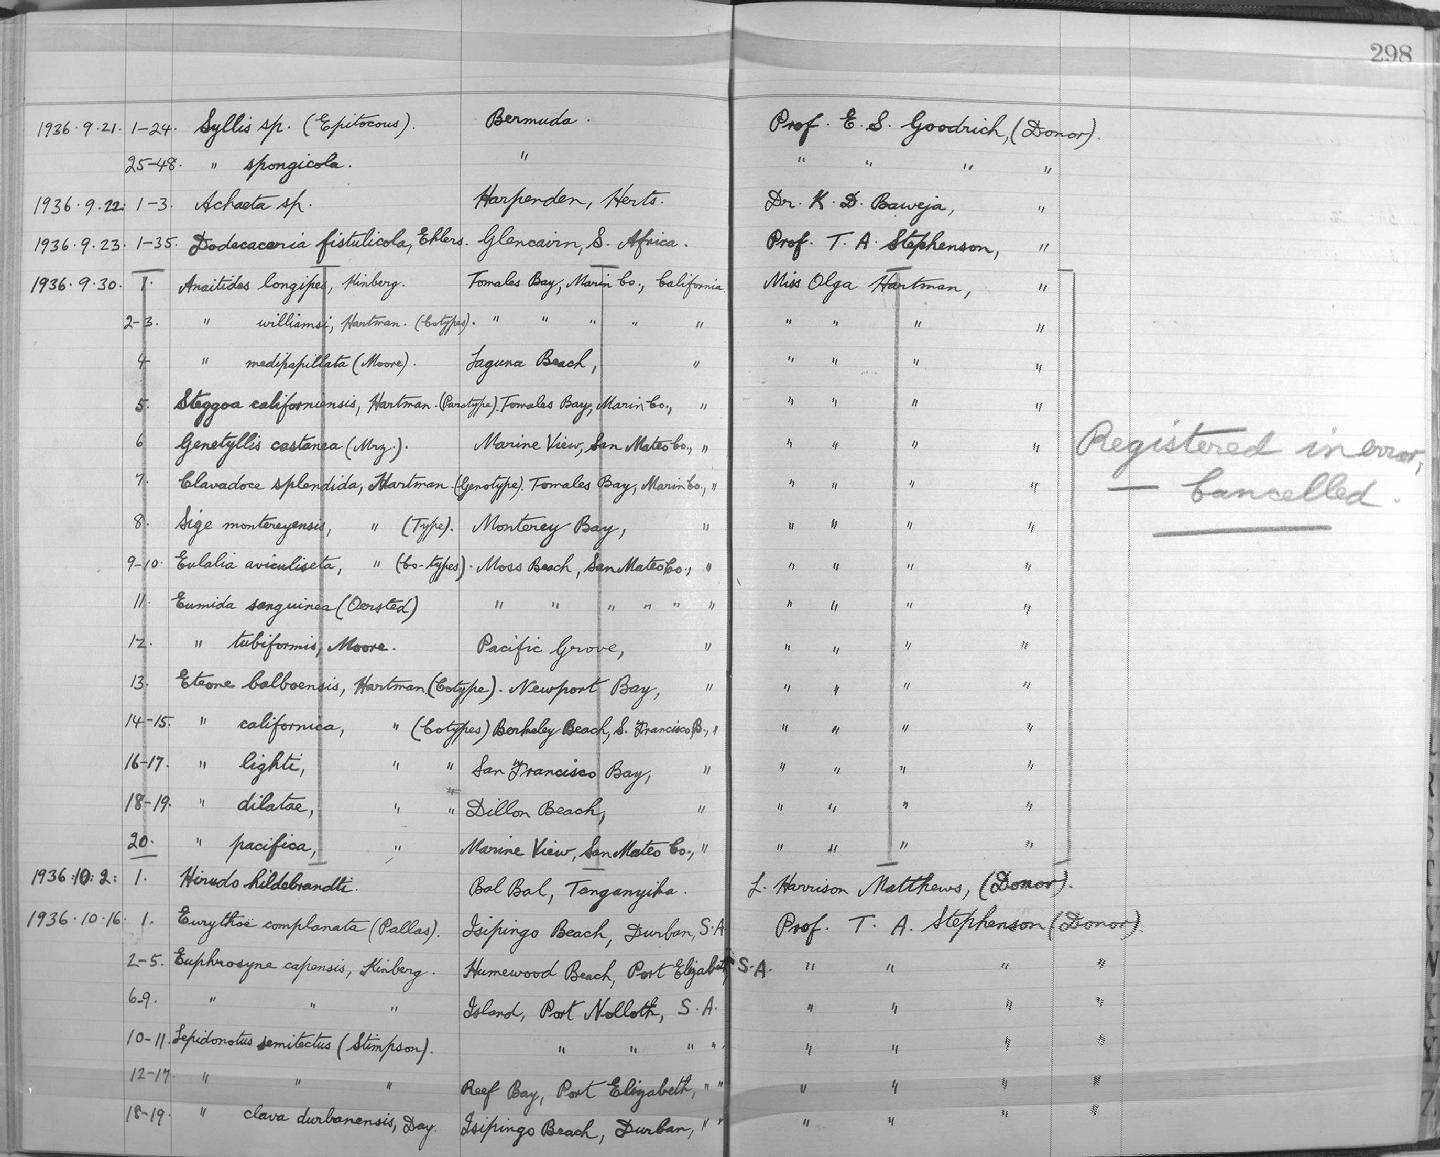 298
1936.9.21. 1-24. Syllis sp. (Epitocous). Bermuda. Prof. E. S. Goodrich, (Donor).
25-48. " spongicola. " " " " "
1936.9.22. 1-3. Achaeta sp. Harpenden, Herts. Dr. K. D. Baweja, "
1936.9.23. 1-35. Dodecaceria fistulicola, Ehlers. Glencairn, S. Africa. Prof. T. A. Stephenson, "
1936.9.30. 1. Anaitides longipes, Kinberg. Tomales Bay, Marin Co., California. Miss Olga Hartman, "
2-3. " williamsi, Hartman. (Cotypes). " " " " " " " " "
4 " medipapillata (Moore). Laguna Beach, " " " " "
5. Steggoa californiensis, Hartman. (Paratype). Tomales Bay, Marin Co., " " " " "
6 Genetyllis castanea (Mrz.). Marine View, San Mateo Co., " " " " "
Registered in error,
7. Clavadoce splendida, Hartman. (Genotype). Tomales Bay, Marin Co., " " " " "
— Cancelled.
8. Sige montereyensis, " (Type). Monterey Bay, " " " " "
9-10. Eulalia aviculiseta, " (Co-types). Moss Beach, San Mateo Co., " " " " "
11. Eumida sanguinea (Oersted) " " " " " " " " " "
12. " tubiformis, Moore. Pacific Grove, " " " " "
13. Eteone balboensis, Hartman (Cotype). Newport Bay, " " " " "
14-15. " californica, " (Cotypes) Berkeley Beach, S. Francisco B., " " " " "
16-17. " lighti, " " San Francisco Bay, " " " " "
18-19. " dilatae, " " Dillon Beach, " " " " "
20. " pacifica, " Marine View, San Mateo Co., " " " " "
1936.10.2. 1. Hirudo hildebrandti. Bal Bal, Tanganyika. L. Harrison Matthews, (Donor).
1936.10.16. 1. Eurythoë complanata (Pallas). Isipingo Beach, Durban, S.A. Prof. T. A. Stephenson (Donor).
2-5. Euphrosyne capensis, Kinberg. Humewood Beach, Port Elizabeth, S.A. " " " "
6-9. " " " Island, Port Nolloth, S.A. " " " "
10-11. Lepidonotus semitectus (Stimpson). " " " " " " " "
12-17. " " " Reef Bay, Port Elizabeth, " " " " " "
18-19. " clava durbanensis, Day. Isipingo Beach, Durban, " " " " " "